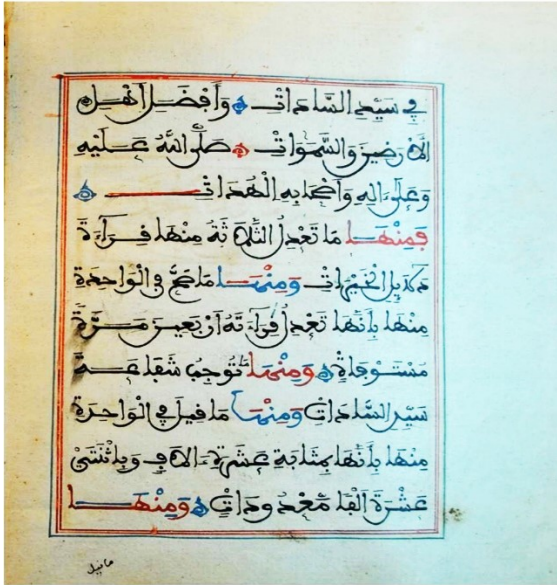 في سَيِّدِ السَّادَاتِ وَأَفْضَلِ أَهْلِ
الَارَضِينَ وَالسَّمَوَاتِ صَلَّى اللَّهُ عَلَيْهِ
وَعَلَى ءَالِهِ وَأَصْحَابِهِ الْهُدَاتِ
فَمِنْهَا مَا تَعْدِلُ الثَّلَاثَةُ مِنْهَا قِرَاءَةَ
دَلَايِلِ الْخَيْرَاتِ وَمِنْهَا مَا صَحَّ فِي الْوَاحِدَةِ
مِنْهَا بِأَنَّهَا تَعْدِلُ قِرَاءَتَهُ أَرْبَعِينَ مَرَّةً
مُسْتَوْفَاةً وَمِنْهَا مَا تُوجِبُ شَفَاعَةَ
سَيِّدِ السَّادَاتِ وَمِنْهَا مَا قِيلَ فِي الْوَاحِدَةِ
مِنْهَا بِأَنَّهَا بِمَثَابَةِ عَشَرَةِ ءَالَافٍ وَبِاثْنَتَيْ
عَشْرَةَ أَلْفًا مَعْدُودَاتٍ وَمِنْهَا
ما قيل